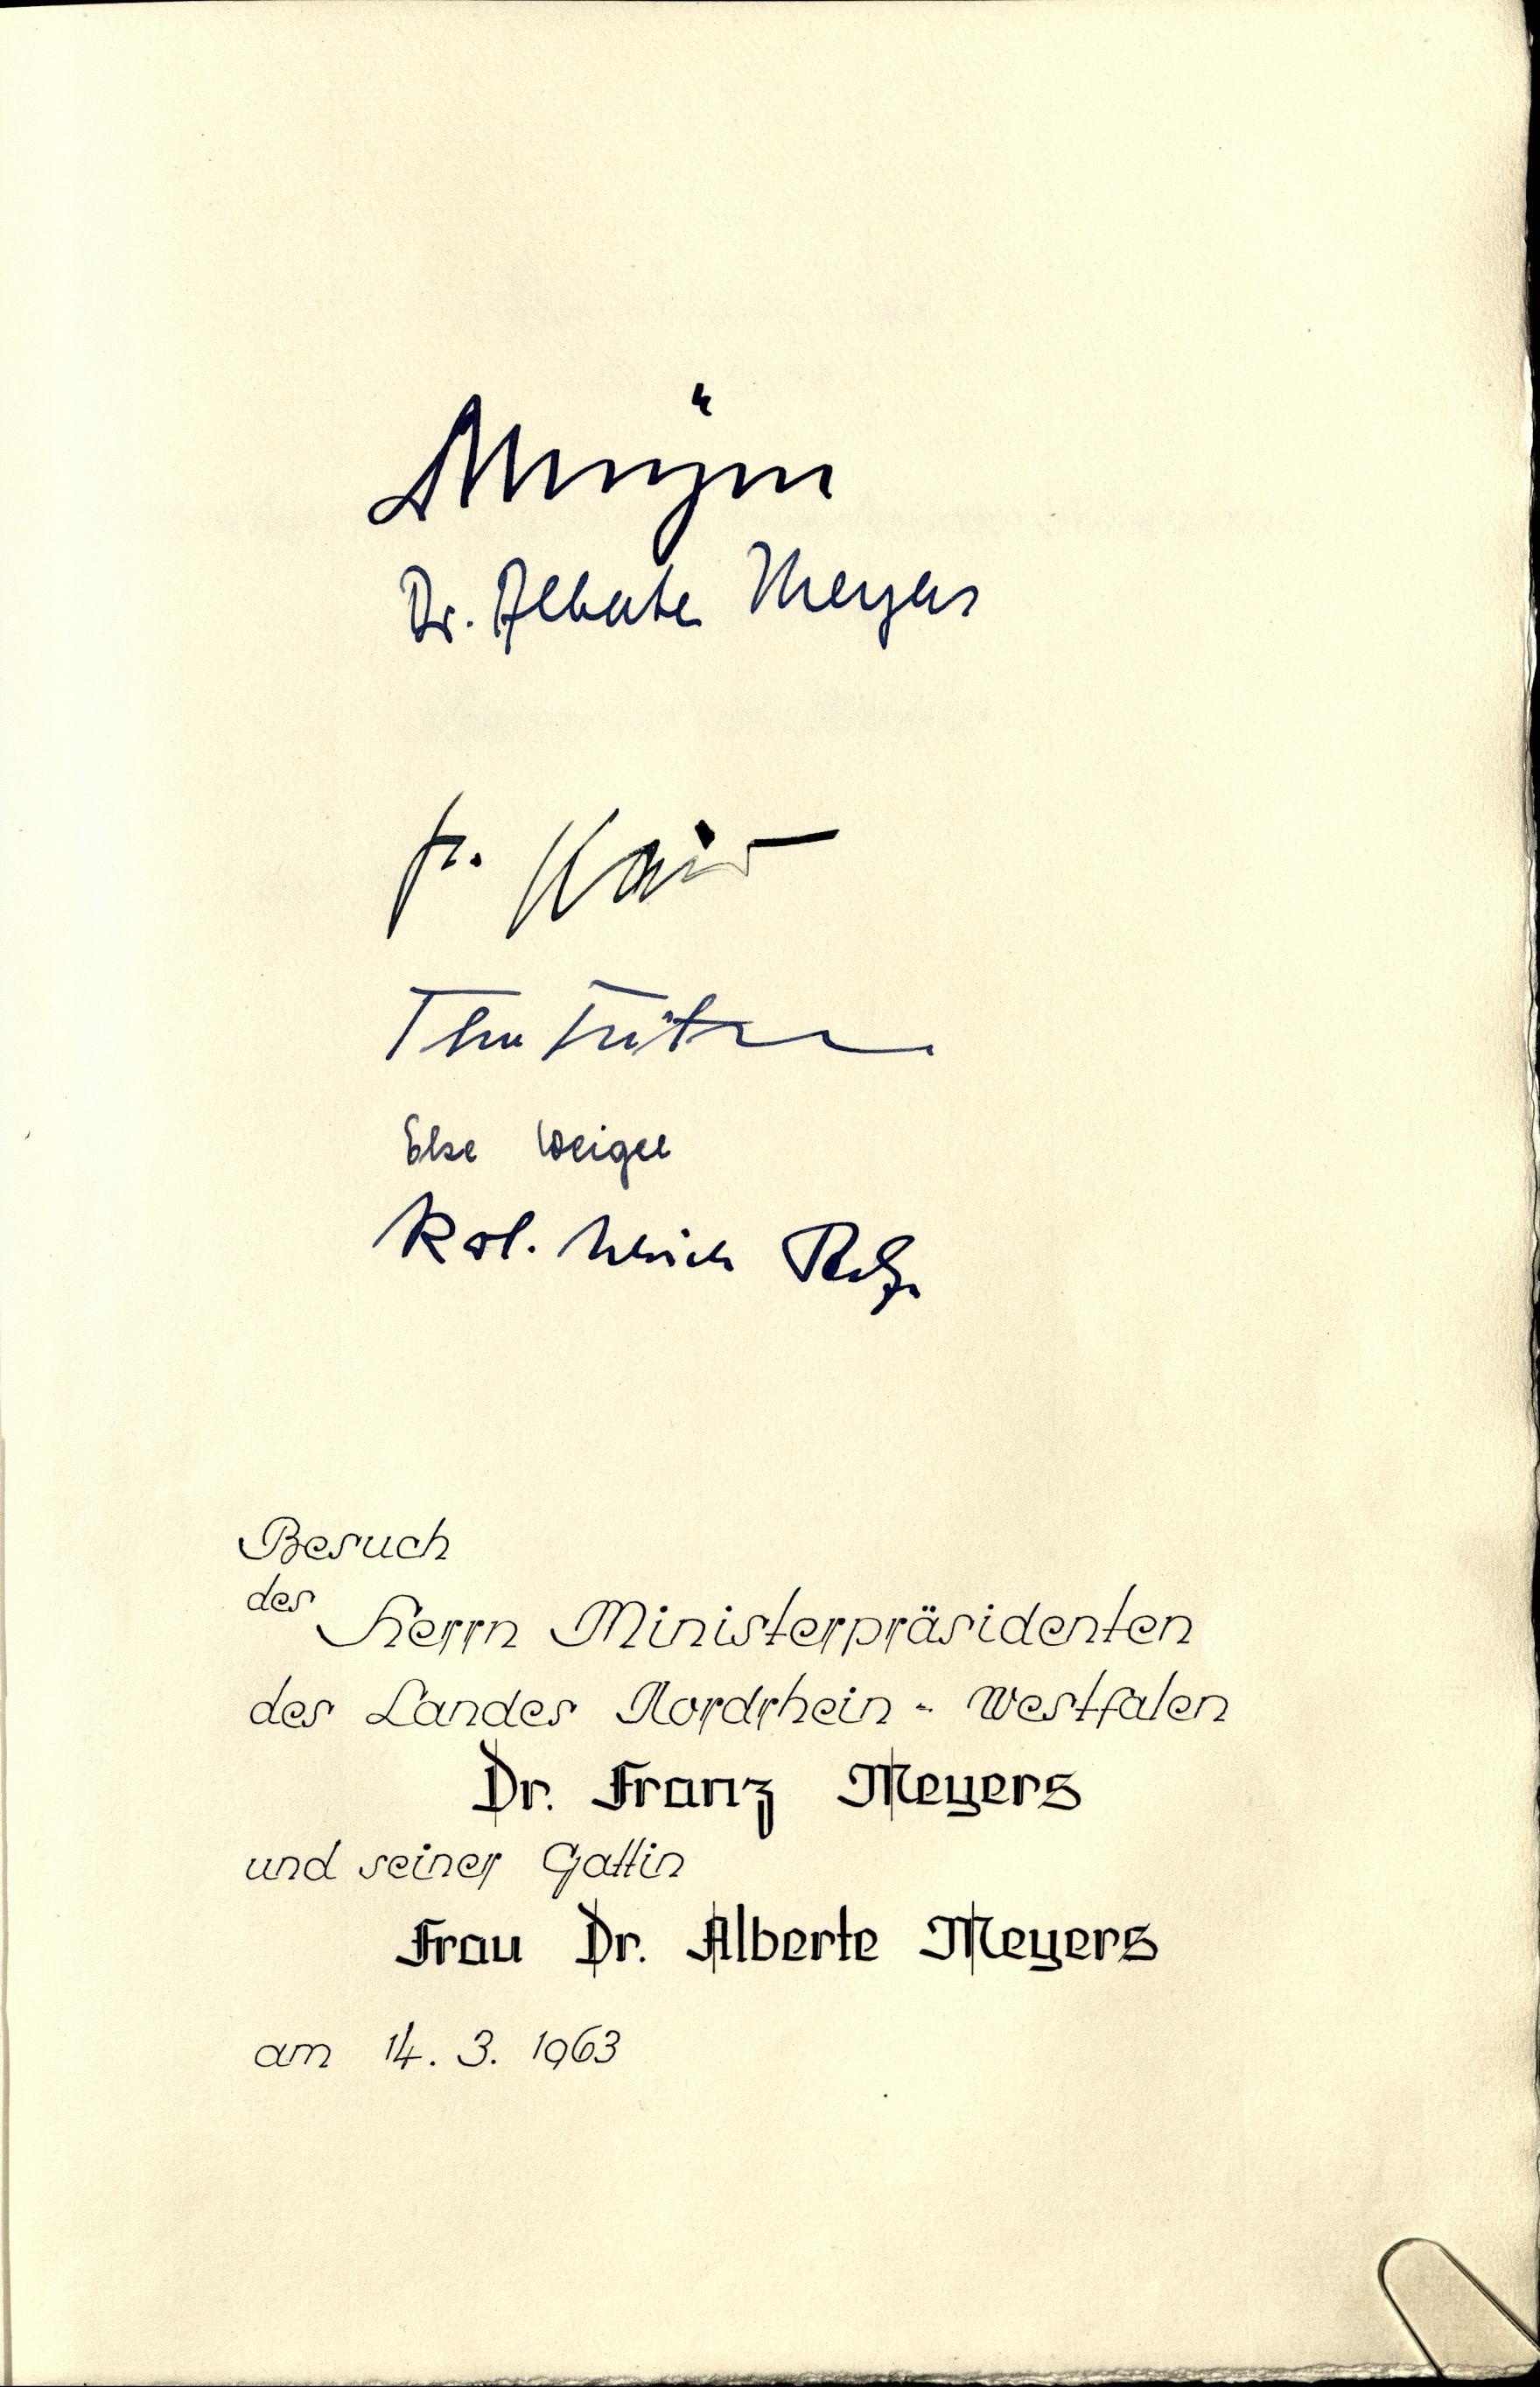 Dr. Alberte Meyers
Else Weigel
Besuch
des Herrn Ministerpräsidenten
des Landes Nordrhein - Westfalen
Dr. Franz Meyers
und seiner Gattin
Frau Dr. Alberte Meyers
am 14. 3. 1963